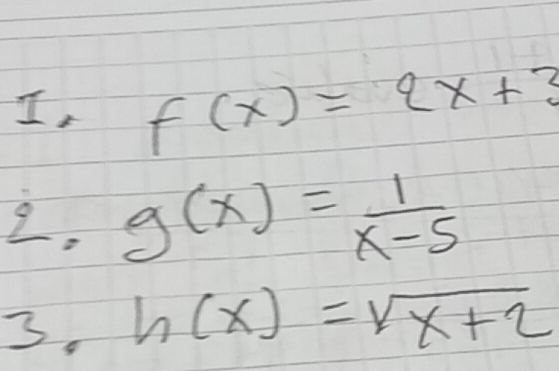 I. f(x) = 2x+3
2. g(x) = 1/(x-5)
3. h(x) = √(x+2)